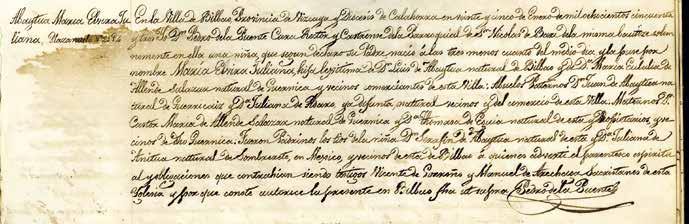 Abaytua Maria Elvira Ju-
liana, Nazaria
En la Villa de Bilbao, Provincia de Vizcaya y Diócesis de Calahorra en veinte y cinco de Enero de mil ochocientos cincuenta
y tres, Yo Dn. Pedro de la Puente Cura Rector y Castrense de la Parroquial de Sn. Nicolas de Bari de la misma, bautizé solem-
nemente en ella una niña, que segun declaró su Padre nació á las tres menos cuarto del medio dia, y la puse por
nombre Maria Elvira Juliana, hija legitima de Dn. Luis de Abaytua natural de Bilbao y Dª Maria de
Allende Salazar natural de Guernica y vecinos comerciantes de esta Villa: Abuelos Paternos Dn. Juan de Abaytua na-
tural de Guerricaiz y Dª Juliana de ya difunta natural vecinos y del comercio de esta Villa. Maternos Dn.
Castor Maria de Allende Salazar natural de Guernica y Dª Tomasa de Eguia natural de esta y Propietarios, ve-
cinos de dha Guernica. Fueron Padrinos los tios de la niña Dn. Serafin de Abaytua natural de esta y Dª Juliana de
Anitua natural de Sombrerete, en Mejico, y vecinos de esta de Bilbao á quienes advertí el parentesco espiritu-
al y obligaciones que contrahian siendo testigos Vicente de Barreño y Manuel de Arechaga Sacristanes de esta
Yglesia y por que conste autorizo la presente en Bilbao fha ut supra. Pedro de la Puente